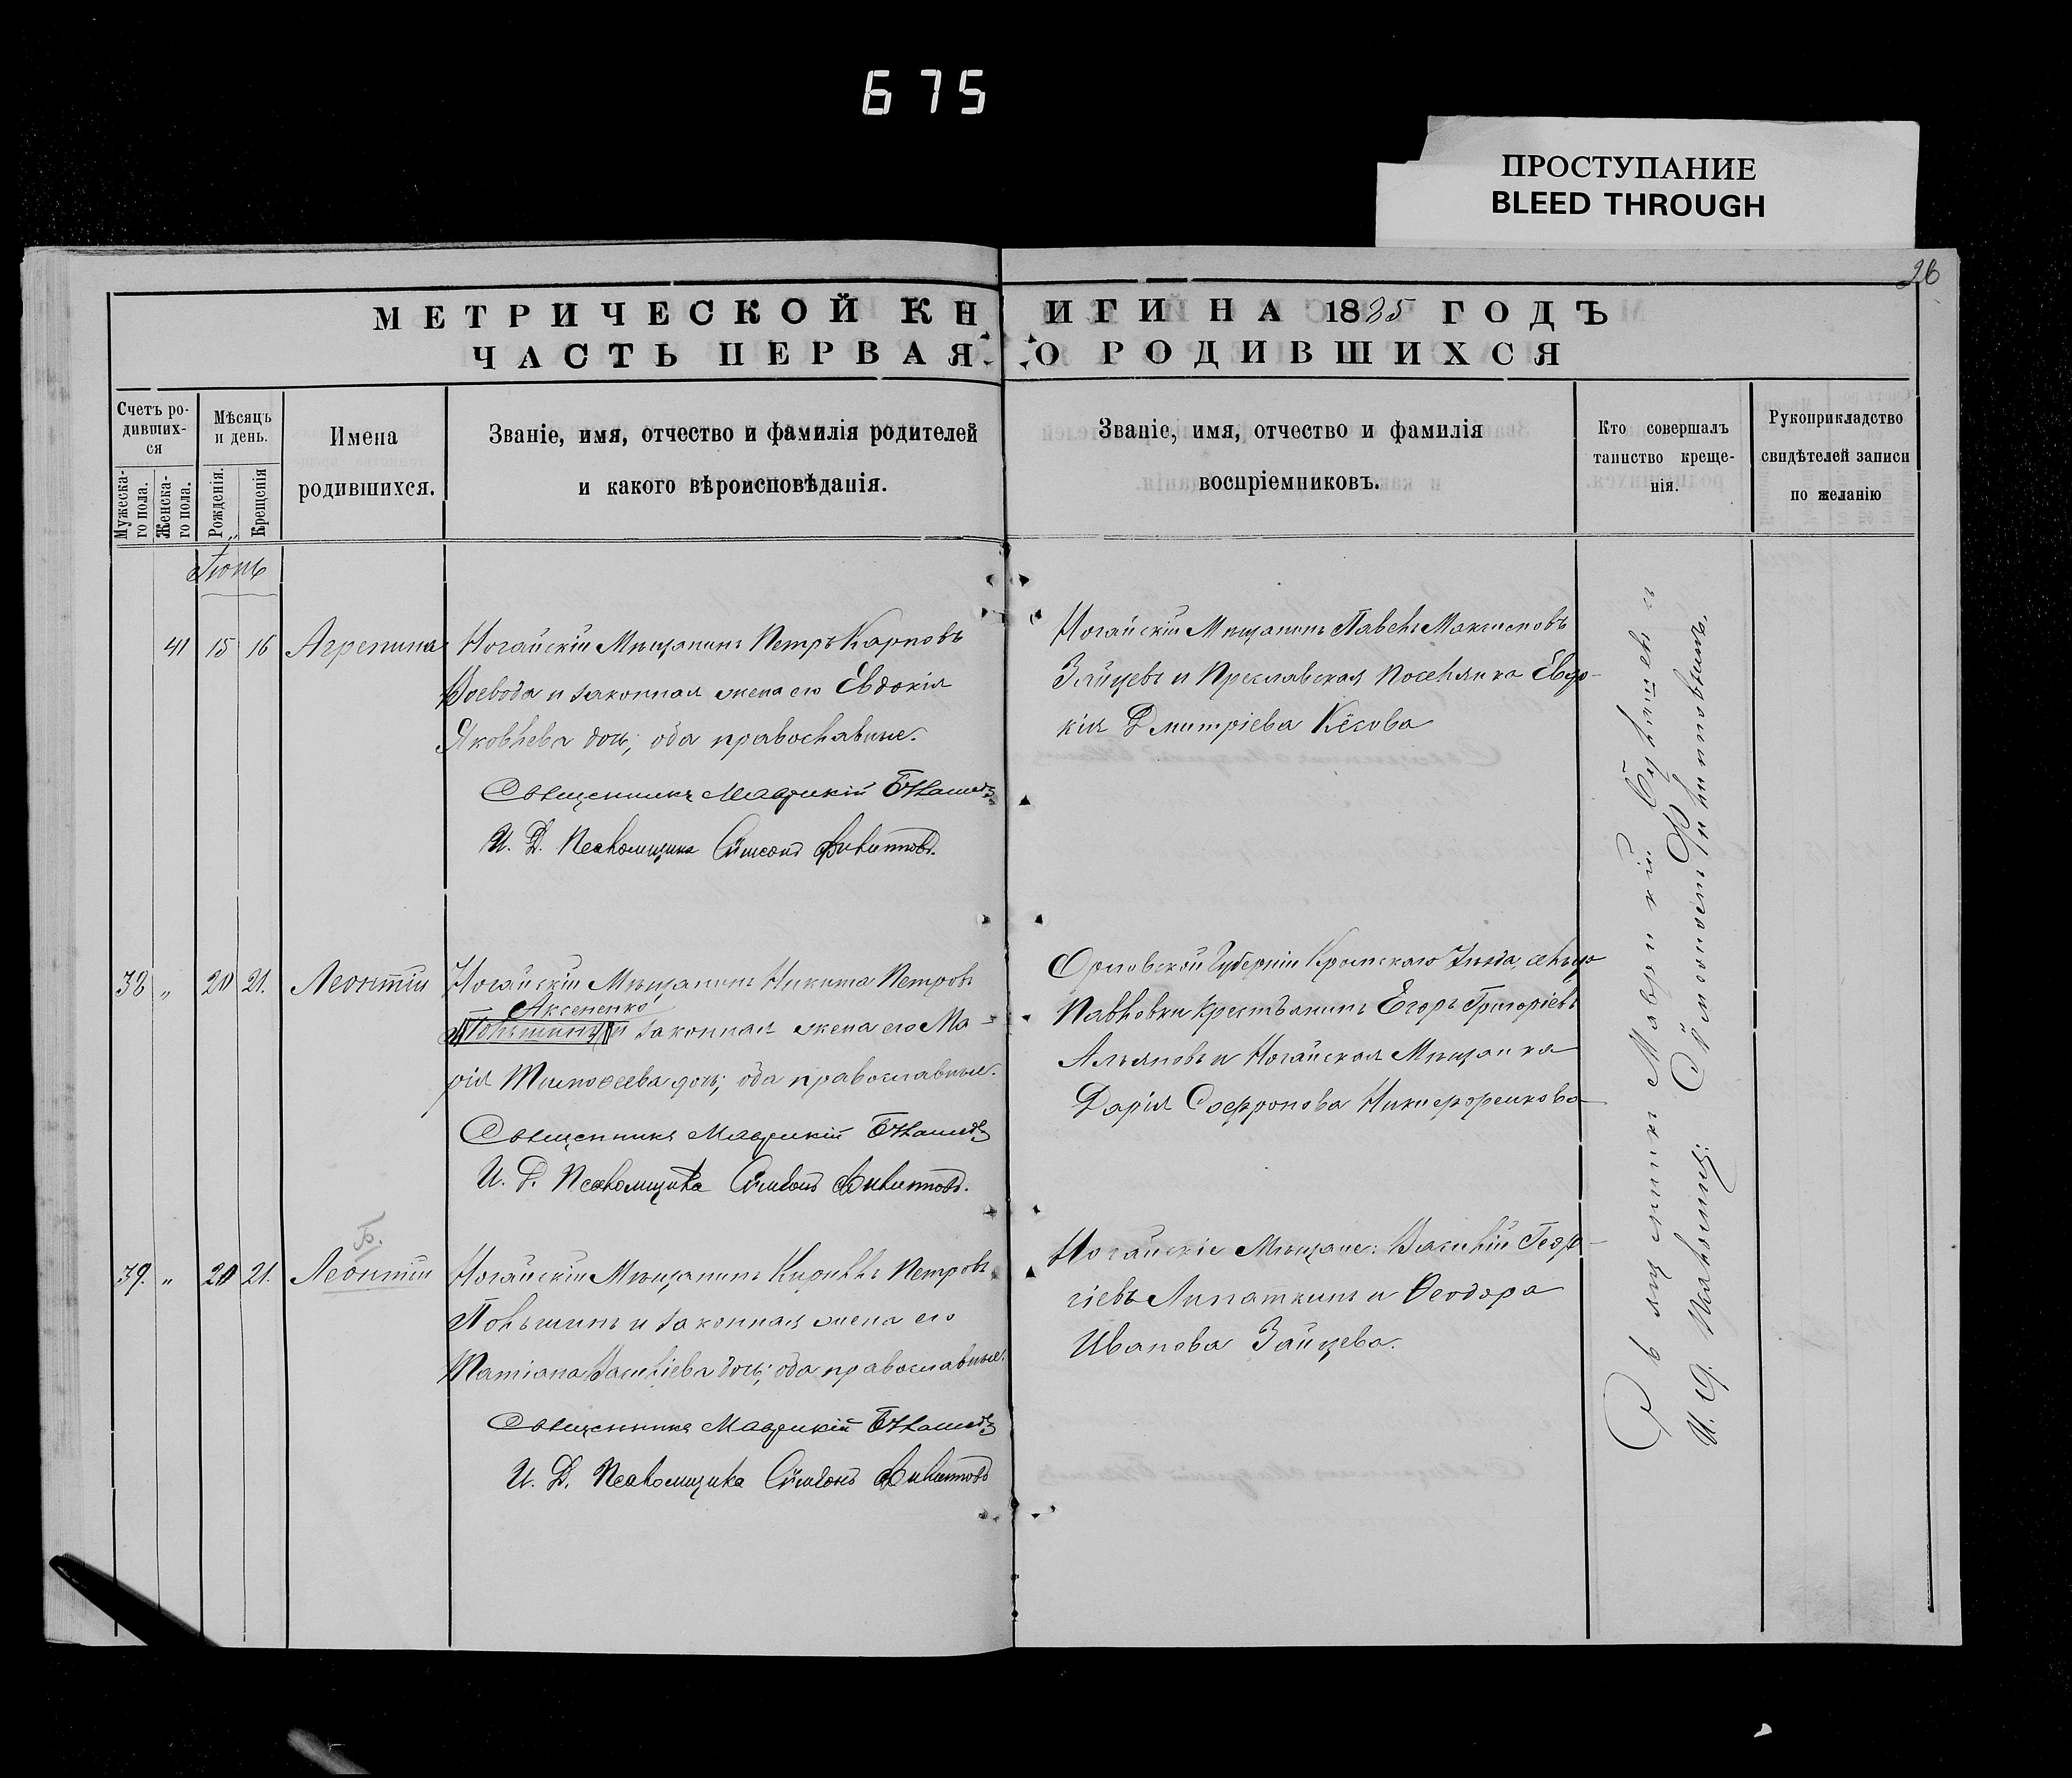 675
ПРОСТУПАНИЕ
BLEED THROUGH
26
МЕТРИЧЕСКОЙ КНИГИ НА 1885 ГОДЪ
ЧАСТЬ ПЕРВАЯ О РОДИВШИХСЯ
Счетъ родившихся
Мужескаго пола.
Женскаго пола.
Мѣсяцъ и день.
Рожденія.
Крещенія
Имена родившихся.
Званіе, имя, отчество и фамилія родителей
и какого вѣроисповѣданія.
Званіе, имя, отчество и фамилія
воспріемниковъ.
Кто совершалъ
таинство креще-
нія.
Рукоприкладство
свидѣтелей записи
по желанію
Іюнь
41 15 16 Агрепина
Ногайскій Мѣщанинъ Петръ Карповъ
Воевода и законная жена его Евдокія
Яковлева дочь; оба православные.
Священникъ Маврикій
И. Д. Псаломщика Сѵмеонъ Филиповъ.
Ногайскій Мѣщанинъ Павелъ Максимовъ
Зайцевъ и Преславская Поселянка Евдо-
кія Дмитріева Кёсова
38 „ 20 21. Леонтій
Ногайскій Мѣщанинъ Никита Петровъ
Аксененко
и законная жена его Ма-
рія Тимофеева дочь; оба православные.
Священникъ Маврикій
И. Д. Псаломщика Сѵмеонъ Филиповъ.
Орловской Губерніи Кромскаго Уѣзда, села
Павловки Крестьянинъ Егоръ Григоріевъ
и Ногайская Мѣщанка
Дарія Софронова Никифоренкова
Б.
39. „ 20 21. Леонтій
Ногайскій Мѣщанинъ Кириллъ Петровъ
Поньшинъ и законная жена его
Татіана Василіева дочь; оба православные.
Священникъ Маврикій
И. Д. Псаломщика Сѵмеонъ Филиповъ
Ногайскіе Мѣщане: Василій Геор-
гіевъ Липаткинъ и Ѳеодора
Иванова Зайцева.
Священникъ Маврикій
И. Д. Псаломщ. Сѵмеонъ Филиповымъ.